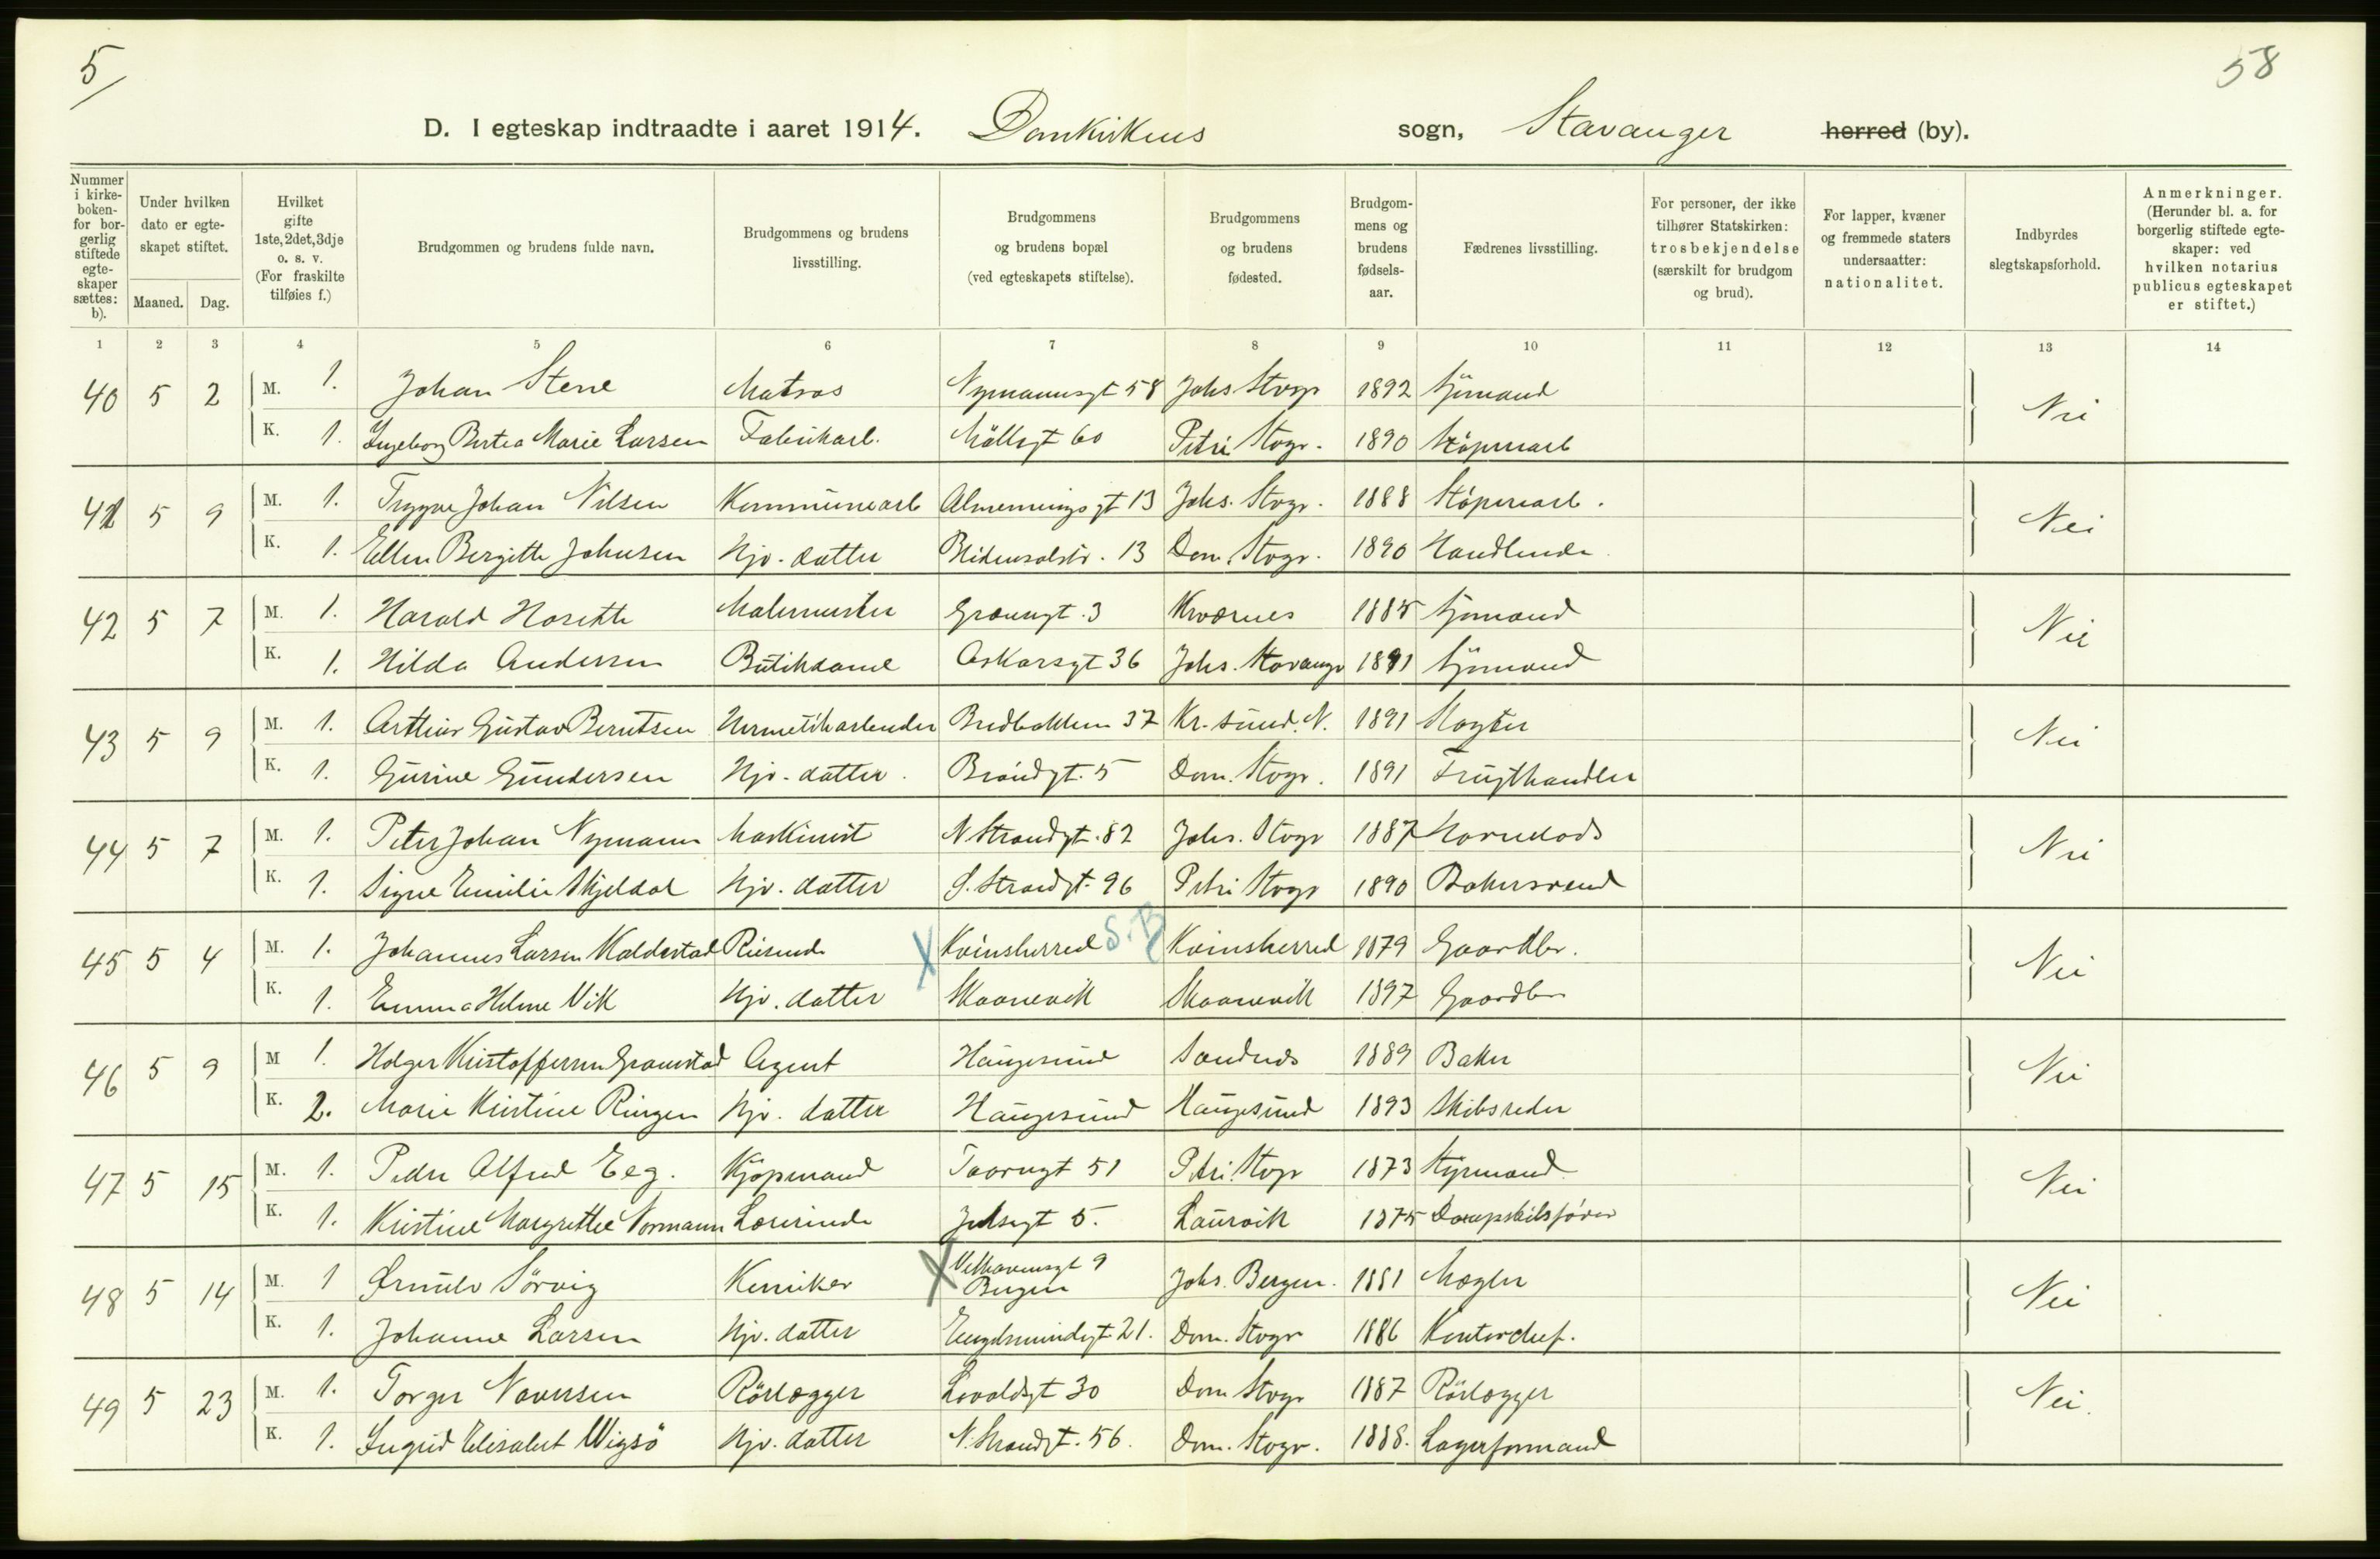 5/
58
D. I egteskap indtraadte i aaret 1914. Domkirkens sogn, Stavanger herred (by).
Nummer i kirkeboken- for borgerlig stiftede egteskaper sættes: b).
Under hvilken dato er egteskapet stiftet.
Maaned. Dag.
Hvilket gifte 1ste, 2det, 3dje o. s. v. (For fraskilte tilføies f.)
Brudgommen og brudens fulde navn.
Brudgommens og brudens livsstilling.
Brudgommens og brudens bopæl (ved egteskapets stiftelse).
Brudgommens og brudens fødested.
Brudgommens og brudens fødselsaar.
Fædrenes livsstilling.
For personer, der ikke tilhører Statskirken: trosbekjendelse (særskilt for brudgom og brud).
For lapper, kvæner og fremmede staters undersaatter: nationalitet.
Indbyrdes slegtskapsforhold.
Anmerkninger. (Herunder bl. a. for borgerlig stiftede egteskaper: ved hvilken notarius publicus egteskapet er stiftet.)
1 2 3 4 5 6 7 8 9 10 11 12 13 14
40 5 2 M. 1. Johan Stene Matros Nymannsgt 58 Johs Stvgr 1892 Sjømand Nei
K. 1. Ingeborg Bertea Marie Larsen Fabrikarb. Møllegt 60 Petri Stvgr. 1890 Støperiarb
41 5 9 M. 1. Trygve Johan Nilsen Kommunearb Almenningsgt 13 Johs. Stvgr. 1888 Støperiarb. Nei
K. 1. Ellen Bergitte Johnsen Hjv. datter 13 Dom. Stvgr. 1890 Handlende
42 5 7 M. 1. Harald Malermester Grønngt. 3 Kværnes 1885 Sjømand Nei
K. 1. Hilda Andersen Butikdame Oskarsgt 36 Johs. Stavanger 1891 Sjømand
43 5 9 M. 1. Arthur Gustav Berntsen Hermetikarbeider Bredbakken 37 Kr. sund. N. 1891 Slagter Nei
K. 1. Gurine Gundersen Hjv. datter. Brøndgt. 5 Dom. Stvgr. 1891 Frugthandler
44 5 7 M. 1. Peter Johan Nymann Maskinist N Strandgt. 82 Johs. Stvgr 1887 Nei
K. 1. Signe Emilie Skjeldal Hjv. datter S. Strandgt. 96 Petri Stvgr 1890 Bakersvend
45 5 4 M. 1. Johannes Larsen Maldestad Reisende X Kvinsherred S. B Kvinsherred 1879 Gaardbr. Nei
K. 1. Emma Helene Vik Hjv. datter Skaanevik Skaanevik 1897 Gaardbr
46 5 9 M 1. Holger Kristoffersen Gramstad Agent Haugesund Sandnes 1889 Baker Nei
K. 2. Marie Kristine Ringen Hjv. datter Haugesund Haugesund 1893 Skibsreder
47 5 15 M. 1. Peder Alfred Eeg. Kjøpmand Taarngt 51 Petri Stvgr 1873 Styrmand Nei
K. 1. Kristine Margrethe Normann Lærerinde 5. Laurvik 1875 Dampskibsfører
48 5 14 M. 1 Ørnulv Sørvig Kemiker X Welhavensgt 9 Bergen Johs. Bergen. 1881 Mægler Nei
K. 1. Johanne Larsen Hjv. datter Engelsmindegt 21. Dom. Stvgr 1886 Kontorchef.
49 5 23 M. 1. Torger Naversen Rörlægger Løvoldsgt 30 Dom Stvgr 1887 Rörlægger Nei.
K. 1. Ingrid Elisabet Wigsø Hjv. datter N. Strandgt. 56. Dom. Stvgr. 1888. Lagerformand